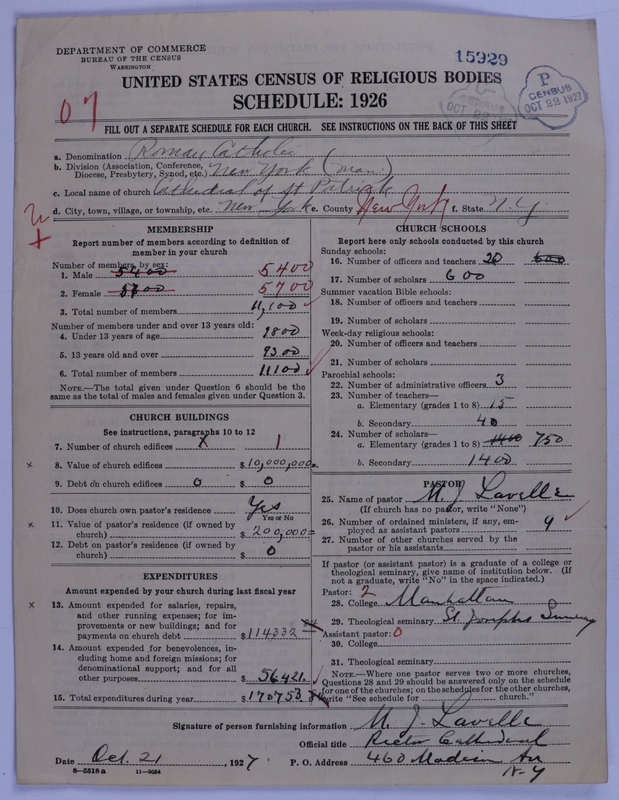 DEPARTMENT OF COMMERCE
BUREAU OF THE CENSUS
WASHINGTON
15929
P
CENSUS
OCT 22 1927
UNITED STATES CENSUS OF RELIGIOUS BODIES
SCHEDULE: 1926
07
FILL OUT A SEPARATE SCHEDULE FOR EACH CHURCH. SEE INSTRUCTIONS ON THE BACK OF THIS SHEET
a. Denomination Roman Catholic
b. Division (Association, Conference,
Diocese, Presbytery, Synod, etc.) New York (Man.)
c. Local name of church Cathedral of St Patrick
d. City, town, village, or township, etc. New York e. County New York f. State N.Y.
MEMBERSHIP
Report number of members according to definition of
member in your church
Number of members, by sex:
1. Male 5400 5400
2. Female 5700 5700
3. Total number of members 11,100
Number of members under and over 13 years old:
4. Under 13 years of age 1800
5. 13 years old and over 9300
6. Total number of members 11100
NOTE.—The total given under Question 6 should be the
same as the total of males and females given under Question 3.
CHURCH BUILDINGS
See instructions, paragraphs 10 to 12
7. Number of church edifices X 1
x 8. Value of church edifices $10,000,000=
9. Debt on church edifices 0 $ 0
10. Does church own pastor's residence Yes
Yes or No
x 11. Value of pastor's residence (if owned by
church) $200,000=
12. Debt on pastor's residence (if owned by
church) $ 0
EXPENDITURES
Amount expended by your church during last fiscal year
x 13. Amount expended for salaries, repairs,
and other running expenses; for im-
provements or new buildings; and for
payments on church debt $114332 84
14. Amount expended for benevolences, in-
cluding home and foreign missions; for
denominational support; and for all
other purposes $56421.
15. Total expenditures during year $170753 84
CHURCH SCHOOLS
Report here only schools conducted by this church
Sunday schools:
16. Number of officers and teachers 20 600
17. Number of scholars 600
Summer vacation Bible schools:
18. Number of officers and teachers
19. Number of scholars
Week-day religious schools:
20. Number of officers and teachers
21. Number of scholars
Parochial schools:
22. Number of administrative officers 3
23. Number of teachers—
a. Elementary (grades 1 to 8) 15
b. Secondary 40
24. Number of scholars—
a. Elementary (grades 1 to 8) 1400 750
b. Secondary 1400
PASTOR
25. Name of pastor M. J. Lavelle
(If church has no pastor, write "None")
26. Number of ordained ministers, if any, em-
ployed as assistant pastors 9
27. Number of other churches served by the
pastor or his assistants
If pastor (or assistant pastor) is a graduate of a college or
theological seminary, give name of institution below. (If
not a graduate, write "No" in the space indicated.)
Pastor: 2
28. College Manhattan
29. Theological seminary St. Josephs Seminary
Assistant pastor: 0
30. College
31. Theological seminary
NOTE.—Where one pastor serves two or more churches,
Questions 28 and 29 should be answered only on the schedule
for one of the churches; on the schedules for the other churches,
write "See schedule for church."
Signature of person furnishing information M. J. Lavelle
Official title Rector Cathedral
Date Oct. 21, 1927 P. O. Address 460 Madison Av
N-Y
8—5518 a 11—9034